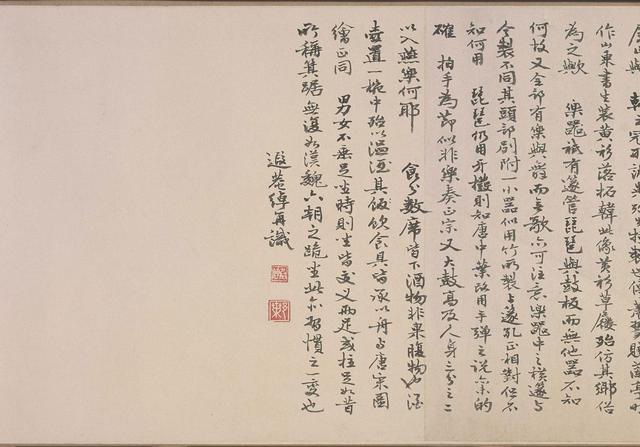 作山東書生裝黃衫落拓韓此像黃衫草屨殆仿其鄉俗
為之歟 樂器祇有篴管琵琶與鼓板而無他器不知
何故又全部有樂與舞而無歌亦可注意樂器中之橫篴与
今製不同其頭部別附一小器似用竹所製与篴孔正相對但不
知何用 琵琶仍用牙撥則知唐中葉改用手彈之說亦未的
確 拍手為節似非樂奏正宗又大鼓高及人身三分之二
以入燕樂何耶 食分數席皆下酒物非果腹物也酒
壺置一椀中殆以溫酒其飯飲食具皆承以舟与唐宋圖
繪正同 男女不垂足坐時則坐皆交叉兩足或拄足如昔
所稱其踞無復如漢魏六朝之跪坐此亦習慣之一變也
遐菴綽再識